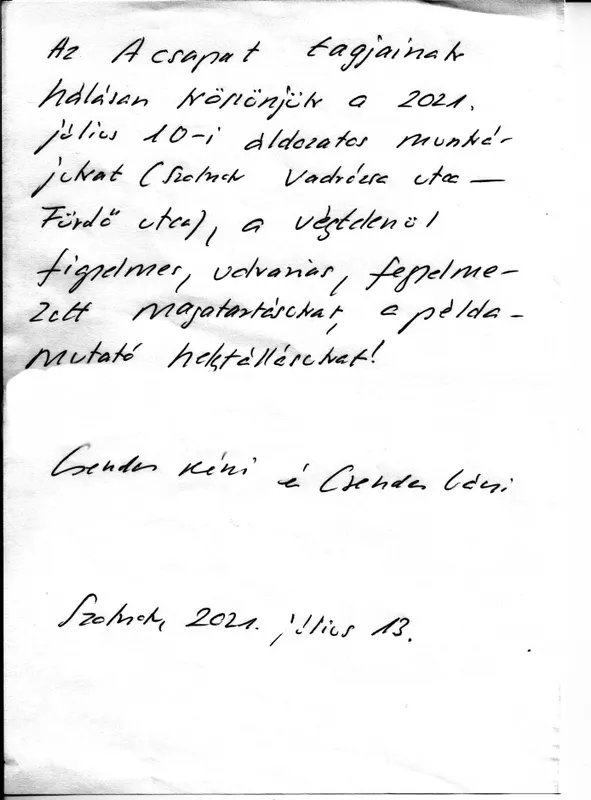 Az A csapat tagjainak
hálásan köszönjük a 2021.
július 10-i áldozatos munká-
jukat (Szolnok Vadrózsa utca —
Fürdő utca), a végtelenül
figyelmes, udvarias, fegyelme-
zett magatartásukat, a példa-
mutató helytállásukat!
Csendes néni és Csendes bácsi
Szolnok, 2021. július 13.